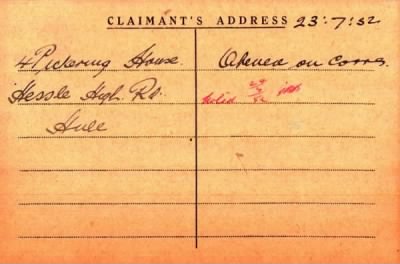 CLAIMANT'S ADDRESS 23·7:52
4 Pickering House.
Hessle High. Rd.
Hull
Opened on Corres.
Noted 24/7/52